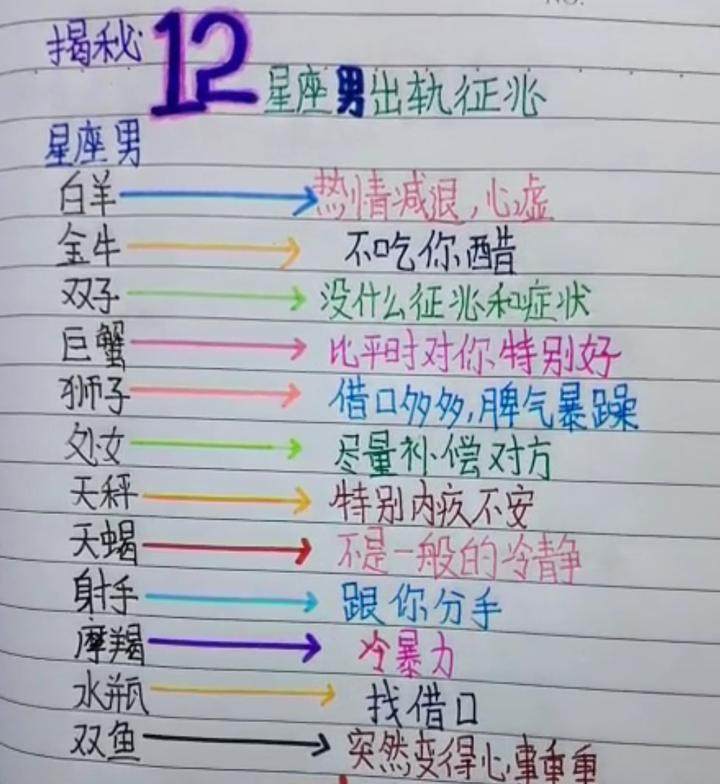 揭秘12星座男出轨征兆
星座男
白羊 热情减退,心虚
金牛 不吃你醋
双子 没什么征兆和症状
巨蟹 比平时对你特别好
狮子 借口多多,脾气暴躁
处女 尽量补偿对方
天秤 特别内疚不安
天蝎 不是一般的冷静
射手 跟你分手
摩羯 冷暴力
水瓶 找借口
双鱼 突然变得心事重重